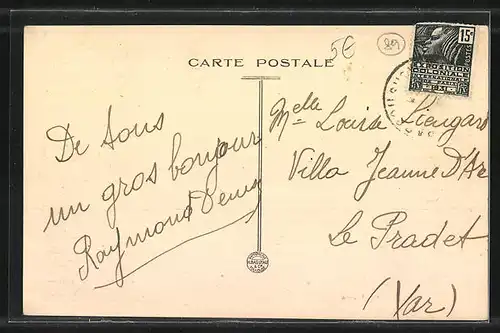 5€
CARTE POSTALE
15c
POSTES
EXPOSITION
COLONIALE
INTERNATIONALE
PARIS
1931
De tous
un gros bonjour
Raymond Denis
Melle Louisa
Villa Jeanne D'Arc
Le Pradet
(Var)